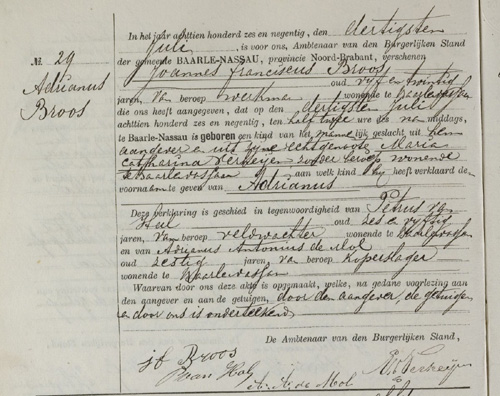 No. 29
Adrianus
Broos
In het jaar achttien honderd zes en negentig, den dertigsten
Juli, is voor ons, Ambtenaar van den Burgerlijken Stand
der gemeente BAARLE-NASSAU, provincie Noord-Brabant, verschenen
Joannes Franciscus Broos
oud vijf en twintig
jaren, van beroep werkman wonende te Baarlenassau
die ons heeft aangegeven, dat op den dertigsten Juli
achttien honderd zes en negentig, ten half twee ure des na middags,
te Baarle-Nassau is geboren een kind van het mannelijk geslacht uit hem
aangever en uit zijne echtgenoote Maria
Catharina Verheijen zonder beroep wonende
te Baarlenassau aan welk kind hij heeft verklaard de
voornaam te geven van Adrianus
Deze verklaring is geschied in tegenwoordigheid van Petrus van
Hal oud zes en vijftig
jaren, van beroep veldwachter wonende te Baarlenassau
en van Adrianus Antonius de Mol
oud zestig jaren, van beroep koperslager
wonende te Baarlenassau
Waarvan door ons deze akte is opgemaakt, welke, na gedane voorlezing aan
den aangever en aan de getuigen, door den aangever, de getuigen
en door ons is onderteekend
De Ambtenaar van den Burgerlijken Stand,
jf Broos
P van Hal
A. A. de Mol
Verheijen